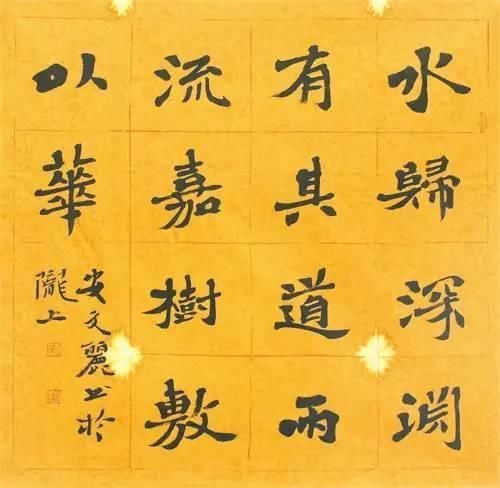 水歸深渊
有其道雨
流嘉樹敷
以華
安文麗书於
隴上